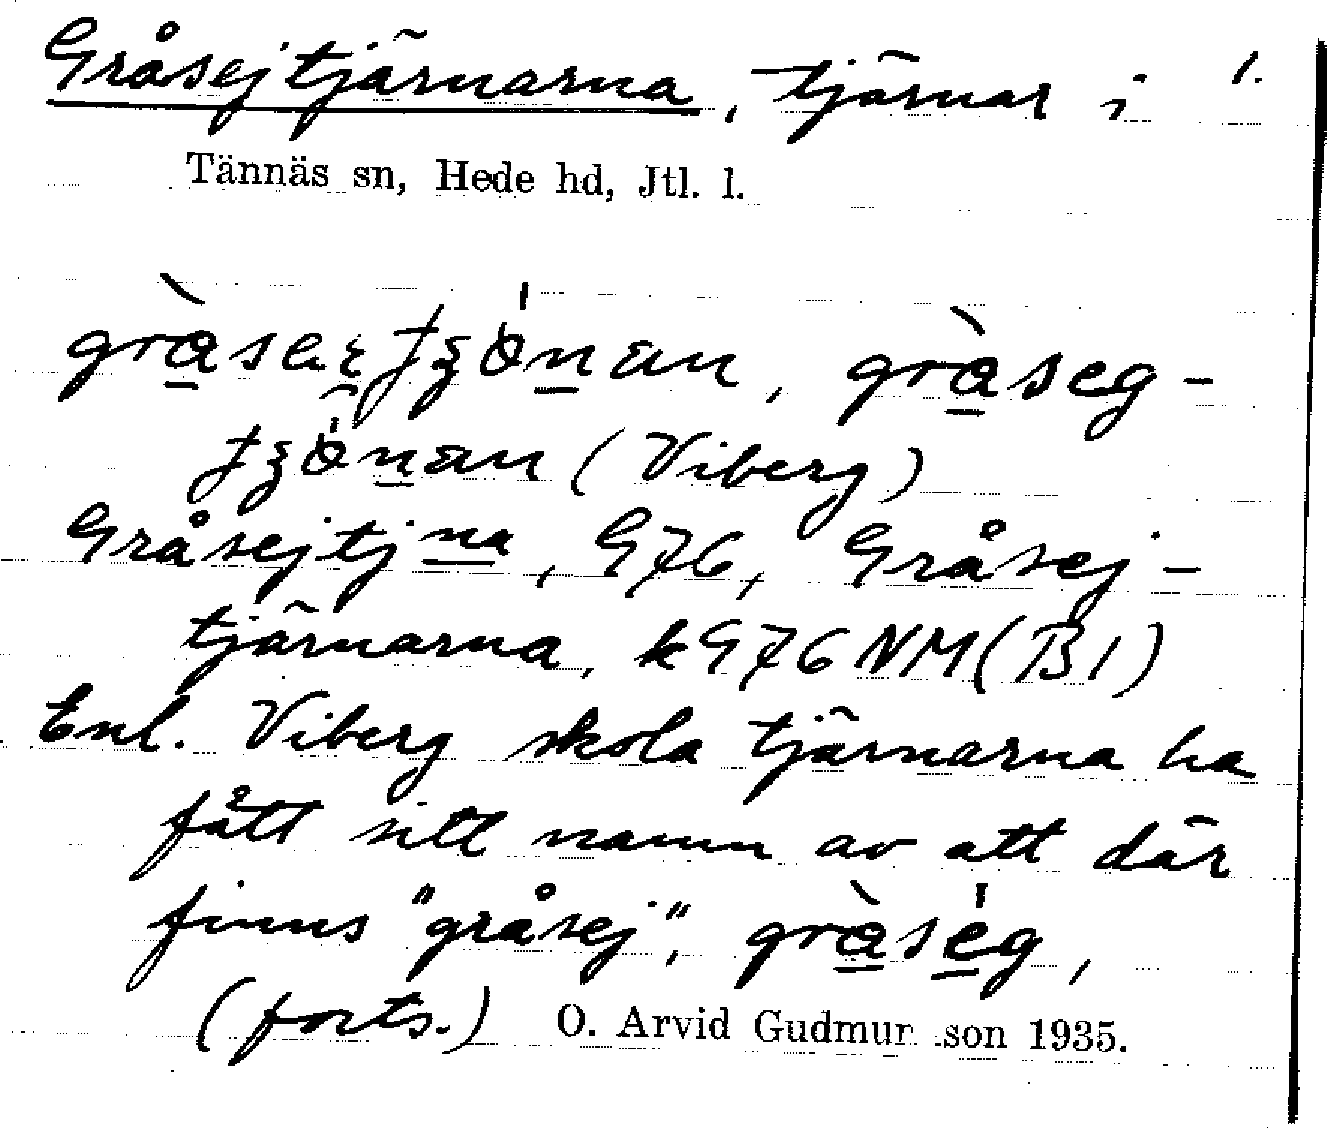 Gråsejtjärnarna, tjärnar i 1.
Tännäs sn, Hede hd, Jtl. l.
gråseg-
(Viberg)
Gråsejtjna, G76, Gråsej-
tjärnarna, kG76NM(B1)
Enl. Viberg skola tjärnarna ha
fått sitt namn av att där
finns "gråsej",
(forts.) O. Arvid Gudmun son 1935.